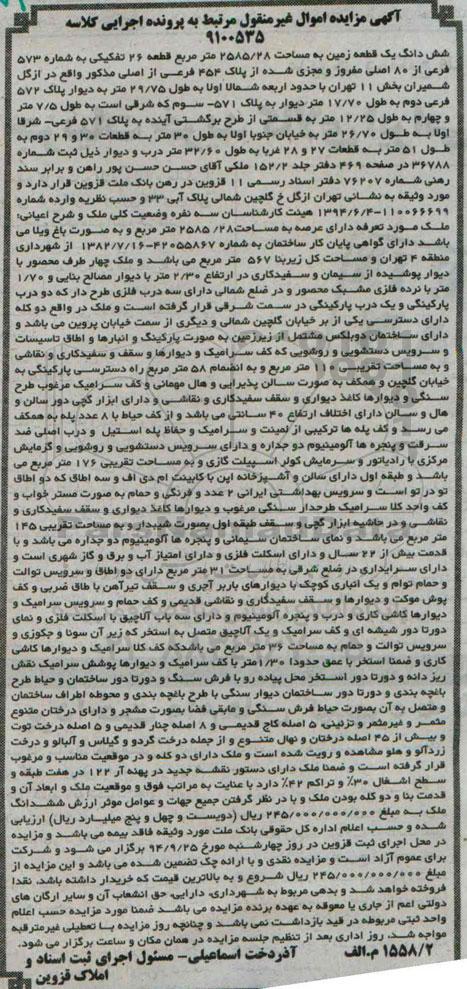 آگهی مزایده اموال غیرمنقول مرتبط به پرونده اجرایی کلاسه
۹۱۰۰۵۳۵
شش دانگ یک قطعه زمین به مساحت ۲۵۸۵/۲۸ متر مربع قطعه ۲۶ تفکیکی به شماره ۵۷۳
فرعی از ۸۰ اصلی مفروز و مجزی شده از پلاک ۴۵۴ فرعی از اصلی مذکور واقع در ازگل
شمیران بخش ۱۱ تهران با حدود اربعه شمالا اولا به طول ۲۹/۷۵ متر به دیوار پلاک ۵۷۲
فرعی دوم به طول ۱۷/۷۰ متر دیوار به پلاک ۵۷۱- سوم که شرقی است به طول ۷/۵ متر
و چهارم به طول ۱۲/۲۵ متر به قسمتی از طرح برگشتی آینده به پلاک ۵۷۱ فرعی- شرقا
اولا به طول ۲۶/۷۰ متر به خیابان جنوبا اولا به طول ۳۰ متر به قطعات ۳۰ و ۲۹ دوم به
طول ۵۱ متر به قطعات ۲۷ و ۲۸ غربا به طول ۳۲/۶۰ متر درب و دیوار ذیل ثبت شماره
۳۶۷۸۸ در صفحه ۴۶۹ دفتر جلد ۱۵۲/۲ ملکی آقای حسن حسن پور راهن و برابر سند
رهنی شماره ۷۶۲۰۷ دفتر اسناد رسمی ۱۱ قزوین در رهن بانک ملت قزوین قرار دارد و
مورد وثیقه به نشانی تهران ازگل خ گلچین شمالی پلاک آبی ۳۳ و حسب نظریه وارده شماره
۱۱۰۰۶۶۶۹۹-۱۳۹۴/۶/۴ هیئت کارشناسان سه نفره وضعیت کلی ملک و شرح اعیانی:
ملک مورد تعرفه دارای عرصه به مساحت ۲۵۸۵/۲۸ متر مربع و به صورت باغ ویلا می
باشد دارای گواهی پایان کار ساختمان به شماره ۴۲۰۵۵۸۶۷-۱۳۸۲/۷/۱۶ از شهرداری
منطقه ۴ تهران و مساحت کل زیربنا ۵۶۷ متر مربع می باشد و ملک چهار طرف محصور با
دیوار پوشیده از سیمان و سفیدکاری در ارتفاع ۲/۳۰ متر با دیوار مصالح بنایی و ۱/۷۰
متر با نرده فلزی مشبک محصور و در ضلع شمالی دارای سه درب فلزی طرح دار که دو درب
پارکینگی و یک درب پارکینگی در سمت شرقی قرار گرفته است و ملک در واقع دو کله
دارای دسترسی یکی از بر خیابان گلچین شمالی و دیگری از سمت خیابان پروین می باشد و
دارای ساختمان دوبلکس مشتمل از زیرزمین به صورت پارکینگ و انبارها و اطاق تاسیسات
و سرویس دستشویی و روشویی که کف سرامیک و دیوارها و سقف و سفیدکاری و نقاشی
و به مساحت تقریبی ۱۱۰ متر مربع و به انضمام ۵۸ متر مربع راه دسترسی پارکینگی به
خیابان گلچین و همکف به صورت سالن پذیرایی و هال مهمانی و کف سرامیک مرغوب طرح
سنگی و دیوارها کاغذ دیواری و سقف سفیدکاری و نقاشی و دارای ابزار گچی دور سالن و
هال و سالن دارای اختلاف ارتفاع ۴۰ سانتی می باشد و از کف حیاط با ۸ عدد پله به همکف
می رسد و کف پله ها ترکیبی از لمینت و سرامیک و حفاظ پله استیل و درب اصلی ضد
سرقت و پنجره ها آلومینیوم دو جداره و دارای سرویس دستشویی و روشویی و گرمایش
مرکزی با رادیاتور و سرمایش کولر اسپیلت گازی و به مساحت تقریبی ۱۷۶ متر مربع می
باشد و طبقه اول دارای سالن و آشپزخانه اپن با کابینت ام دی اف و سه اطاق که دو اطاق
تو در تو است و سرویس بهداشتی ایرانی ۲ عدد و فرنگی و حمام به صورت مستر خواب و
کف واحد کلا سرامیک طرحدار سنگی مرغوب و دیوارها کاغذ دیواری و سقف سفیدکاری و
نقاشی و در حاشیه ابزار گچی و سقف طبقه اول بصورت شیبدار و به مساحت تقریبی ۱۴۵
متر مربع می باشد و نمای ساختمان سیمانی و پنجره ها آلومینیوم دو جداره می باشد و با
قدمت بیش از ۲۲ سال و دارای اسکلت فلزی و دارای امتیاز آب و برق و گاز شهری است و
دارای سرایداری در ضلع شرقی به مساحت ۳۱ متر مربع دارای دو اطاق و سرویس توالت
و حمام توام و یک انباری کوچک با دیوارهای باربر آجری و سقف تیرآهن با طاق ضربی و کف
پوش موکت و دیوارها و سقف سفیدکاری و نقاشی قدیمی و کف حمام و سرویس سرامیک و
دیوارها کاشی کاری و درب و پنجره آلومینیوم و دارای سه باب آلاچیق با اسکلت فلزی و نمای
دورتا دور شیشه ای و کف سرامیک و یک آلاچیق متصل به استخر که زیر آن سونا و جکوزی و
سرویس توالت و حمام به مساحت ۳۶ متر مربع می باشدکه کف کلا سرامیک و دیوارها کاشی
کاری و ضمنا استخر با عمق حدودا ۱/۳۰متر با کف سرامیک و دیوارها پوشش سرامیک نقش
ریز دانه و دورتا دور استخر محل پیاده رو با فرش سنگ و دورتا دور ساختمان و حیاط طرح
باغچه بندی و دورتا دور ساختمان دیوار سنگی با طرح باغچه بندی و محوطه اطراف ساختمان
و متصل به آن بصورت حیاط فرش سنگی و مابقی فضا بصورت مشجر و دارای درختان متنوع
مثمر و غیرمثمر و تزئینی، ۵ اصله کاج قدیمی و ۸ اصله چنار قدیمی و ۵ اصله درخت توت
و بیش از ۴۵ اصله درختان و نهال متنوع و از جمله درخت گردو و گیلاس و آلبالو و درخت
زردآلو و هلو مشاهده و رویت شده است و ملک دارای دو کله و در موقعیت مناسب و مرغوب
قرار گرفته است و ضمنا ملک دارای دستور نقشه جدید در پهنه آر ۱۲۲ در هفت طبقه و
سطح اشغال ۳۰٪ و تراکم ۴۲٪ دارد با عنایت به مراتب فوق و موقعیت ملک و ابعاد آن و
قدمت بنا و دو کله بودن ملک و با در نظر گرفتن جمیع جهات و عوامل موثر ارزش ششدانگ
ملک به مبلغ ۲۴۵/۰۰۰/۰۰۰/۰۰۰ ریال (دویست و چهل و پنج میلیارد ریال) ارزیابی
شده و حسب اعلام اداره کل حقوقی بانک ملت مورد وثیقه فاقد بیمه می باشد و مزایده
در محل اجرای ثبت قزوین در روز چهارشنبه مورخ ۹۴/۹/۲۵ برگزار می شود و شرکت
برای عموم آزاد است و مزایده نقدی و با ارائه چک تضمین شده می باشد و این مزایده از
مبلغ ۲۴۵/۰۰۰/۰۰۰/۰۰۰ ریال شروع و به بالاترین قیمت که خریدار داشته باشد، نقدا
فروخته خواهد شد و بدهی مربوط به شهرداری، دارایی، حق انشعاب آن و سایر ارگان های
دولتی اعم از جاری یا معوقه به عهده برنده مزایده می باشد ضمنا مورد مزایده حسب اعلام
واحد ثبتی مربوطه در قید بازداشت نمی باشد و چنانچه روز مزایده با تعطیلی غیرمترقبه
مواجه شد، روز اداری بعد از تنظیم جلسه مزایده در همان مکان و ساعت برگزار می شود.
۱۵۵۸/۲ م.الف آذردخت اسماعیلی- مسئول اجرای ثبت اسناد و
املاک قزوین